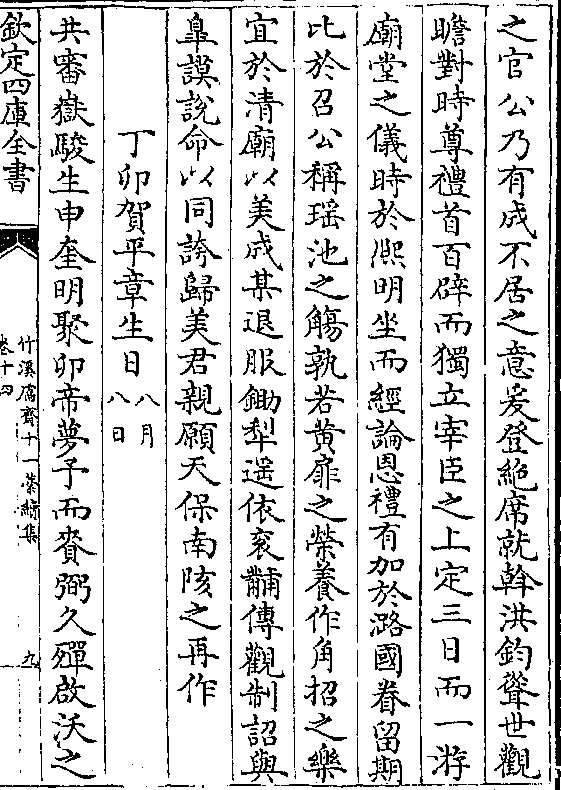 之官公乃有成不居之意爰登絶席就斡洪鈞聳世觀
瞻對時尊禮首百辟而獨立宰臣之上定三日而一游
廟堂之儀時於熈明坐而經論恩禮有加於潞國眷留期
比於召公稱瑶池之觴孰若黄扉之榮養作角招之樂
宜於清廟以美成某退服鋤犁遥依衮黼傳觀制詔與
臯謨説命以同誇歸美君親願天保南陔之再作
丁卯賀平章生日八月八日
共審嶽駿生申奎明聚卯帝夢予而賚弼久殫啟沃之
欽定四庫全書
竹溪鬳齋十一藁續集
卷十四
九